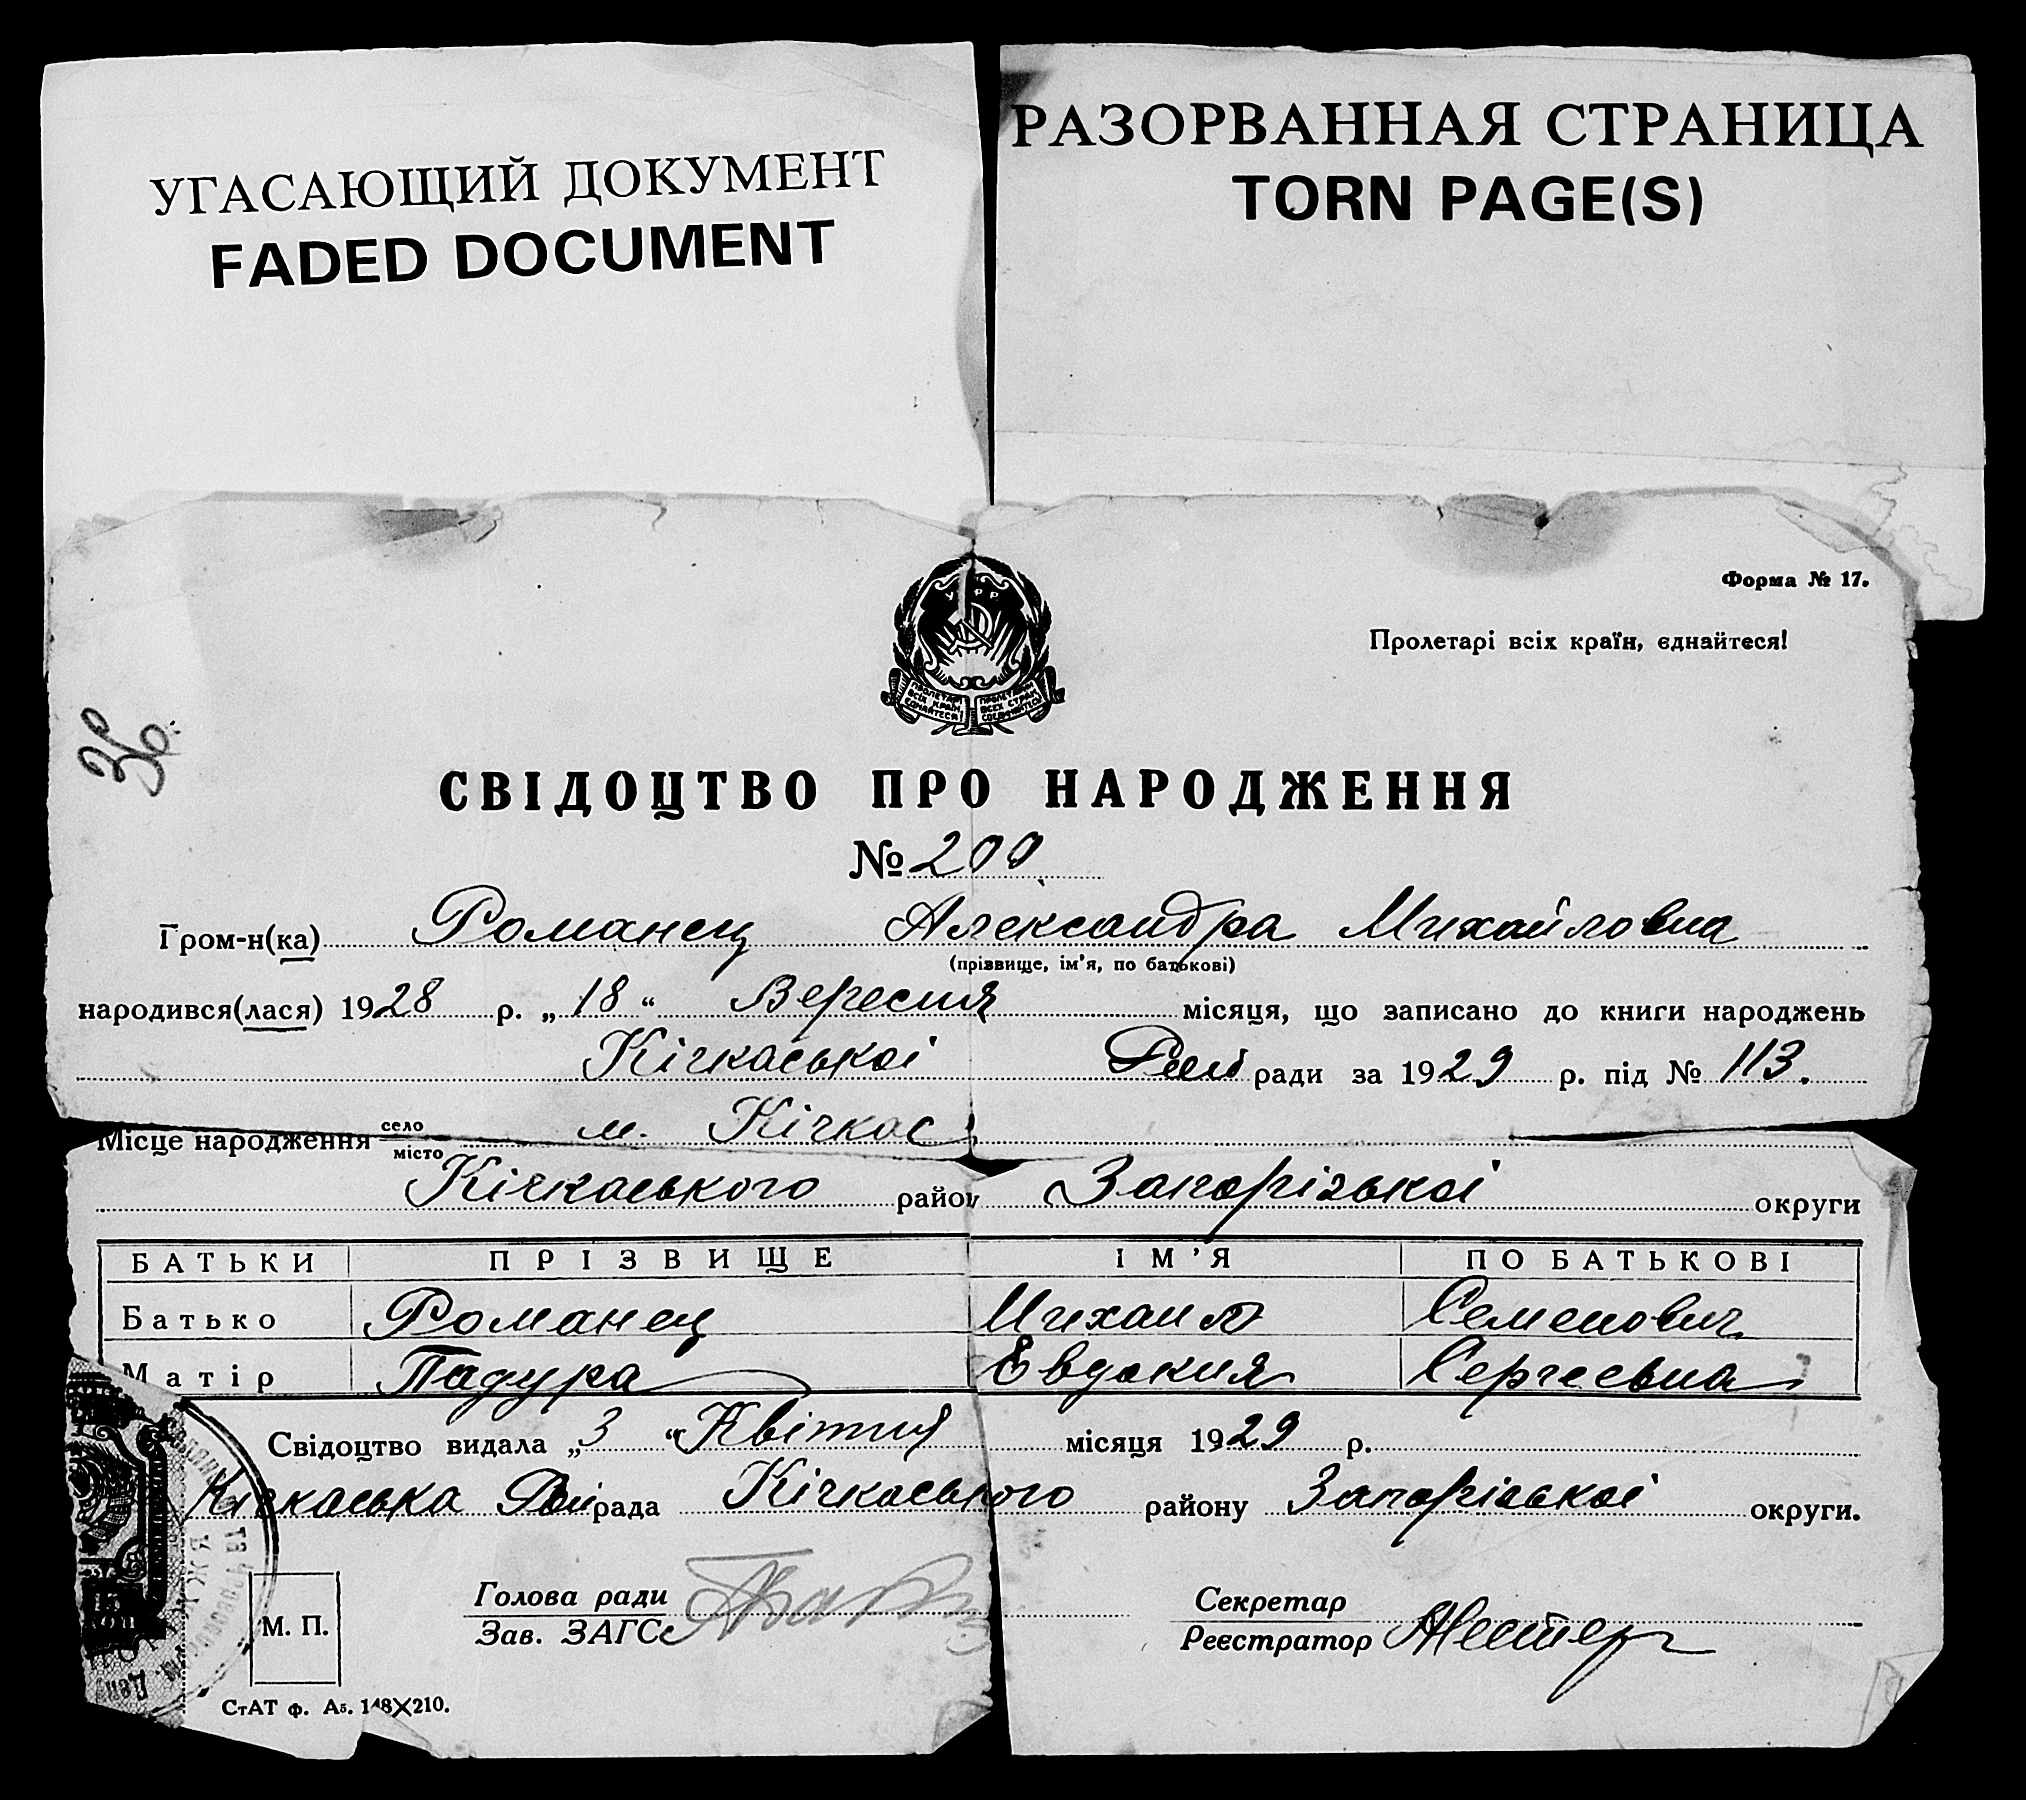 УГАСАЮЩИЙ ДОКУМЕНТ
FADED DOCUMENT
РАЗОРВАННАЯ СТРАНИЦА
TORN PAGE(S)
Форма № 17.
Пролетарі всіх країн, єднайтеся!
СВІДОЦТВО ПРО НАРОДЖЕННЯ
№ 200
Гром-н(ка) Романец Александра Михайловна
(прізвище, ім'я, по батькові)
народився(лася) 1928 р. „18“ Вересня місяця, що записано до книги народжень
Кічкаської ради за 1929 р. під № 113.
Місце народження село місто м. Кічкас
Кічкаського район Запорізької округи
БАТЬКИ ПРІЗВИЩЕ ІМ'Я ПО БАТЬКОВІ
Батько Романец Михаил Семенович
Матір Падура Евдокия Сергеевна
Свідоцтво видала „3“ Квітня місяця 1929 р.
Кічкаська рада Кічкаського району Запорізької округи.
М. П.
Голова ради
Зав. ЗАГС
Секретар
Реєстратор
СтАТ ф. А5. 148X210.